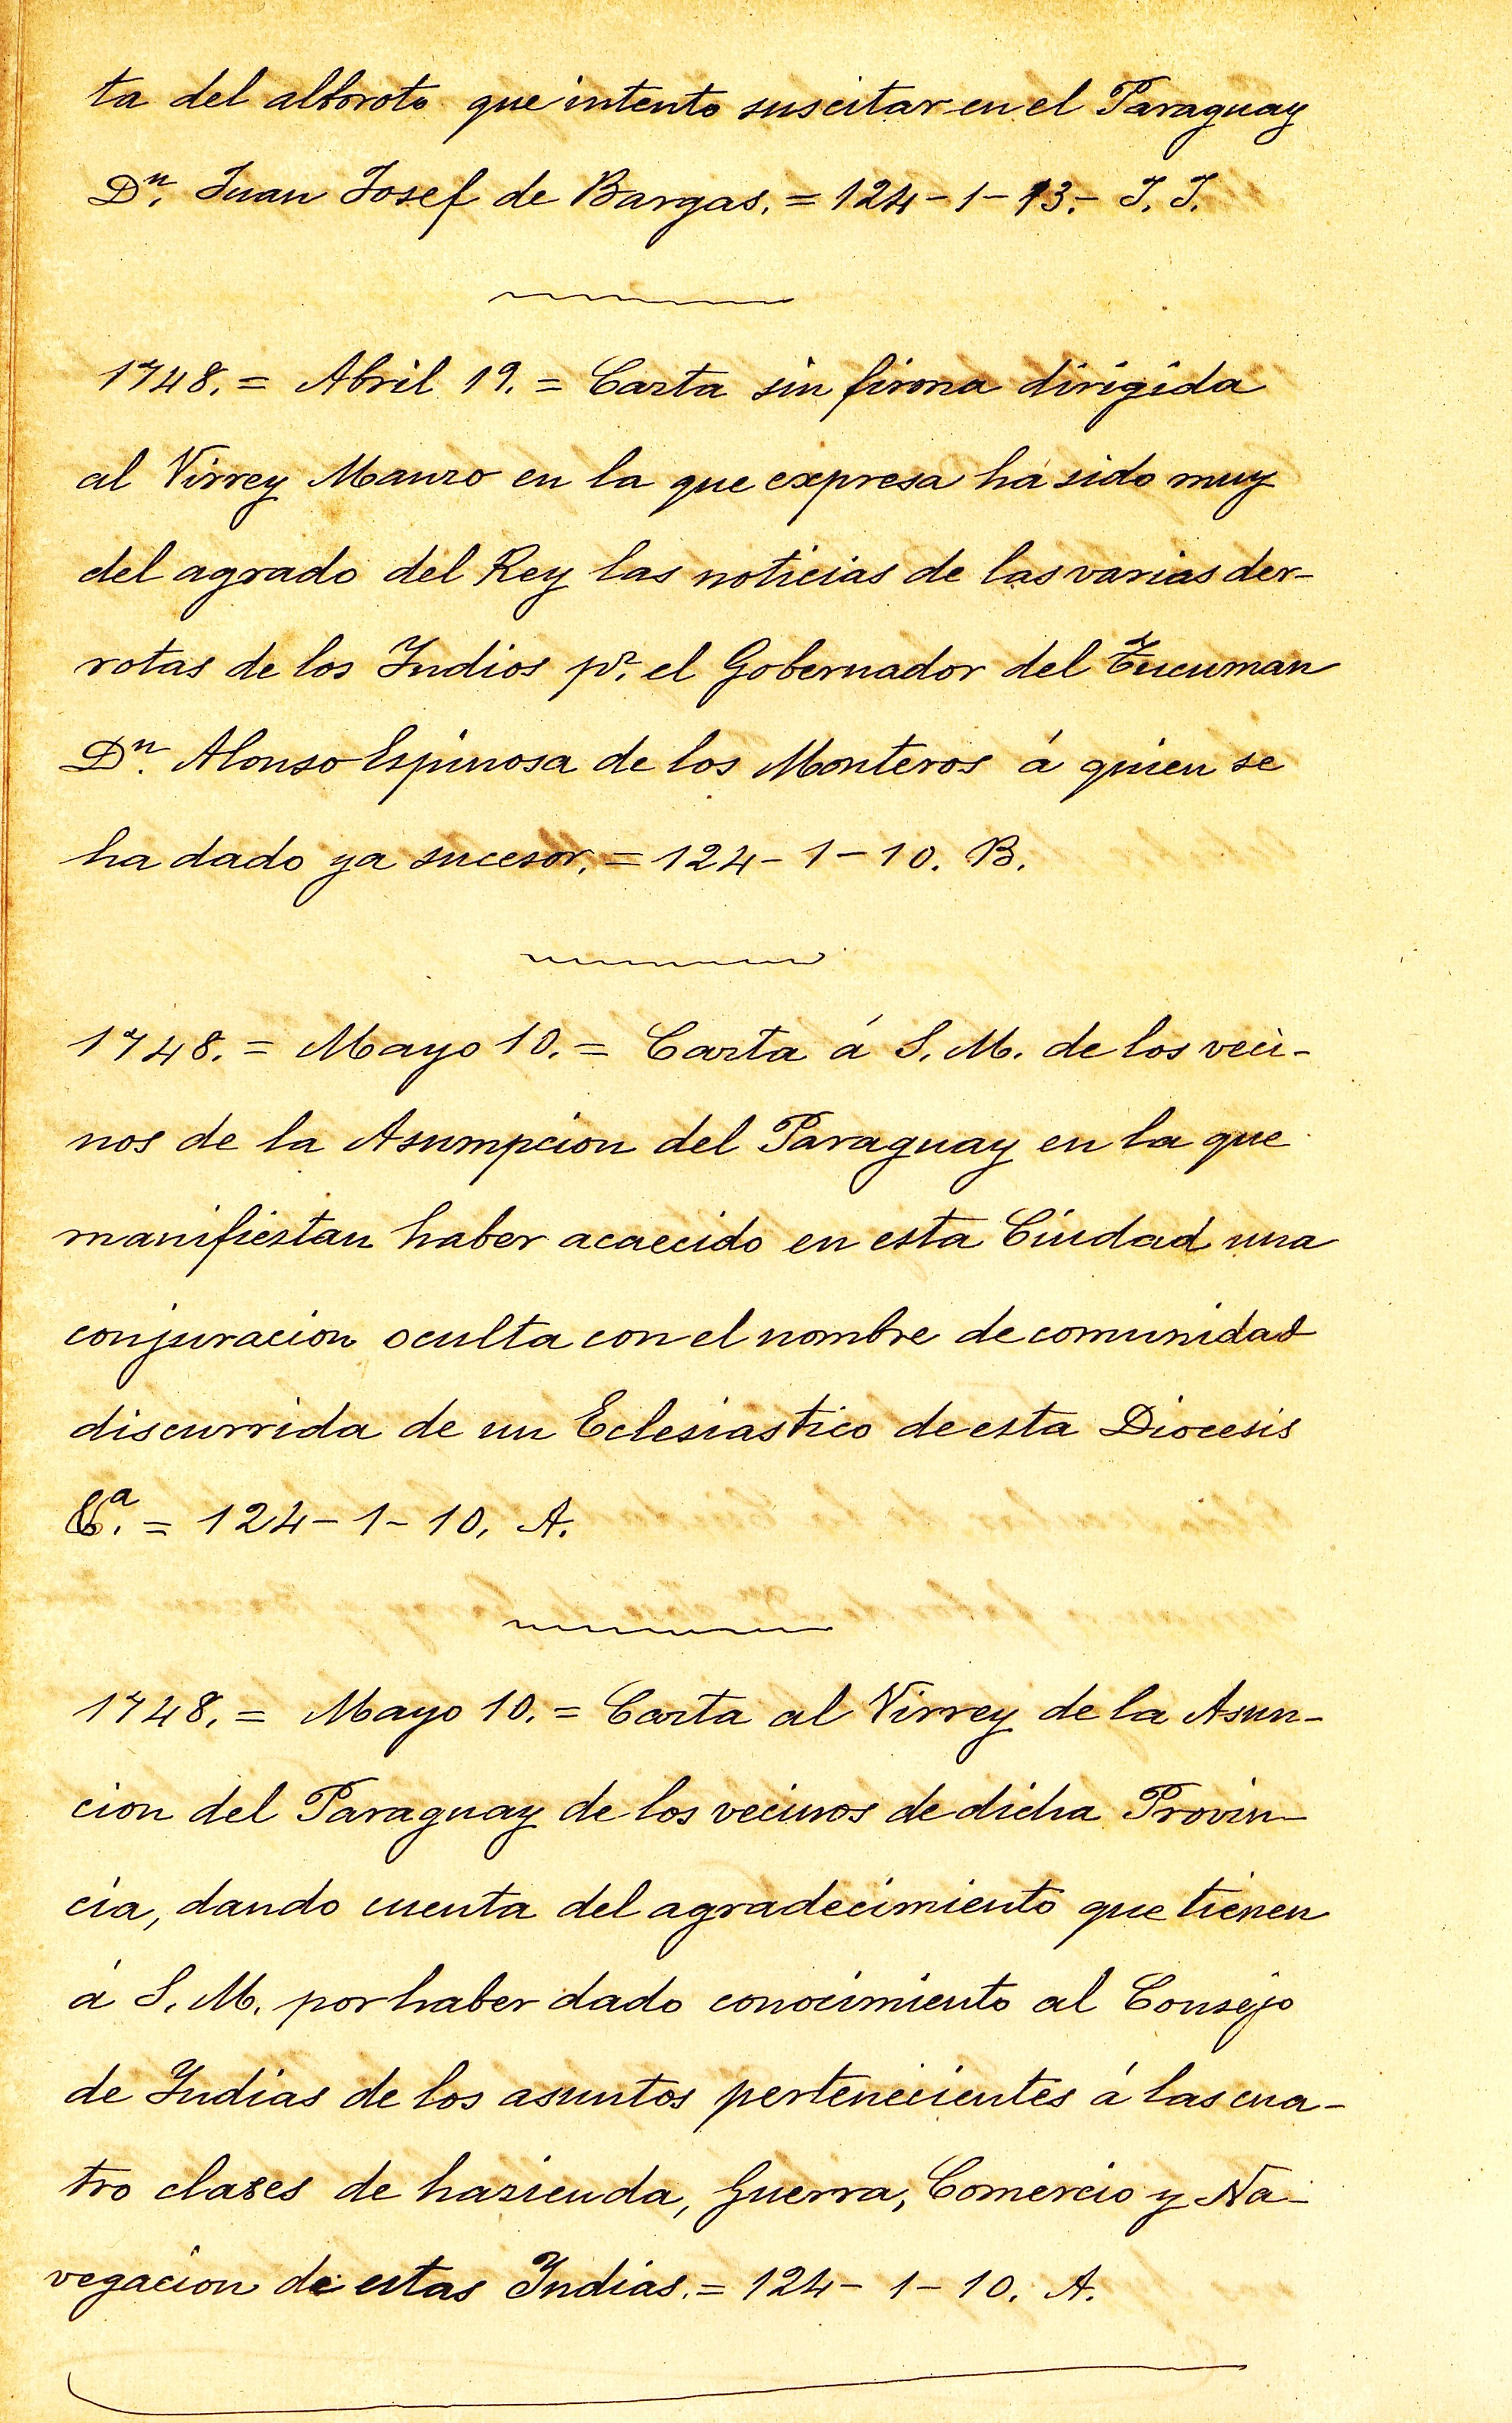 ta del alboroto que intento suscitar en el Paraguay
Dn. Juan Josef de Bargas. = 124 - 1 - 13. - J. J.
1748. = Abril 19. = Carta sin firma dirigida
al Virrey Manzo en la que expresa há sido muy
del agrado del Rey las noticias de las varias der-
rotas de los Indios pr. el Gobernador del Tucuman
Dn. Alonso Espinosa de los Monteros á quien se
ha dado ya sucesor. = 124 - 1 - 10. B.
1748. = Mayo 10. = Carta á S. M. de los veci-
nos de la Asumpcion del Paraguay en la que
manifiestan haber acaecido en esta Ciudad una
conjuracion oculta con el nombre de comunidad
discurrida de un Eclesiastico de esta Diocesis
&a. = 124 - 1 - 10. A.
1748. = Mayo 10. = Carta al Virrey de la Asun-
cion del Paraguay de los vecinos de dicha Provin-
cia, dando cuenta del agradecimiento que tienen
á S. M. por haber dado conocimiento al Consejo
de Indias de los asuntos pertenecientes á las cua-
tro clases de hazienda, Guerra, Comercio y Na-
vegacion de estas Indias. = 124 - 1 - 10. A.